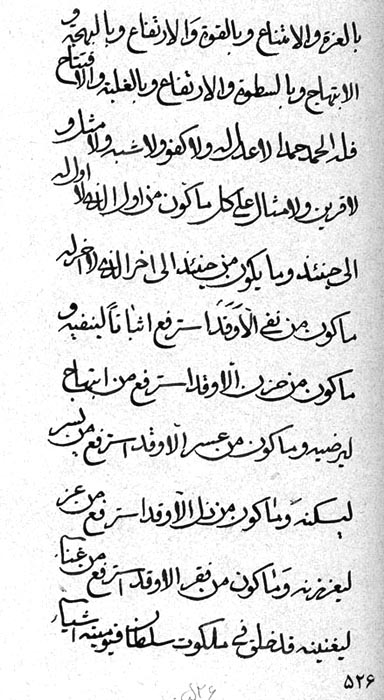 بالعزة والامتناع وبالقوة والارتفاع وبالبهجة و
الابتهاج وبالسطوة والارتفاع وبالغلبة والافتتاح
فله الحمد حمدا لا عدل له ولا كفو ولا شبه ولا مثل و
لا قرين ولا مثال على كل ما كون من اول الذي لا اول له
الى حينئذ وما يكون من حينئذ الى اخر الذي لا اخر له
ما كون من نفي الا وقد استرفع اثباتا لينفيه و
ما كون من حزن الا وقد استرفع من ابتهاج
ليرضيه وما كون من عسر الا وقد استرفع من يسر
ليسكنه وما كون من ذل الا وقد استرفع من عز
ليعززنه وما كون من فقر الا وقد استرفع من غناء
ليغنينه فلخلق في ملكوت سلطان قيوميته اشياء
۵۲۶